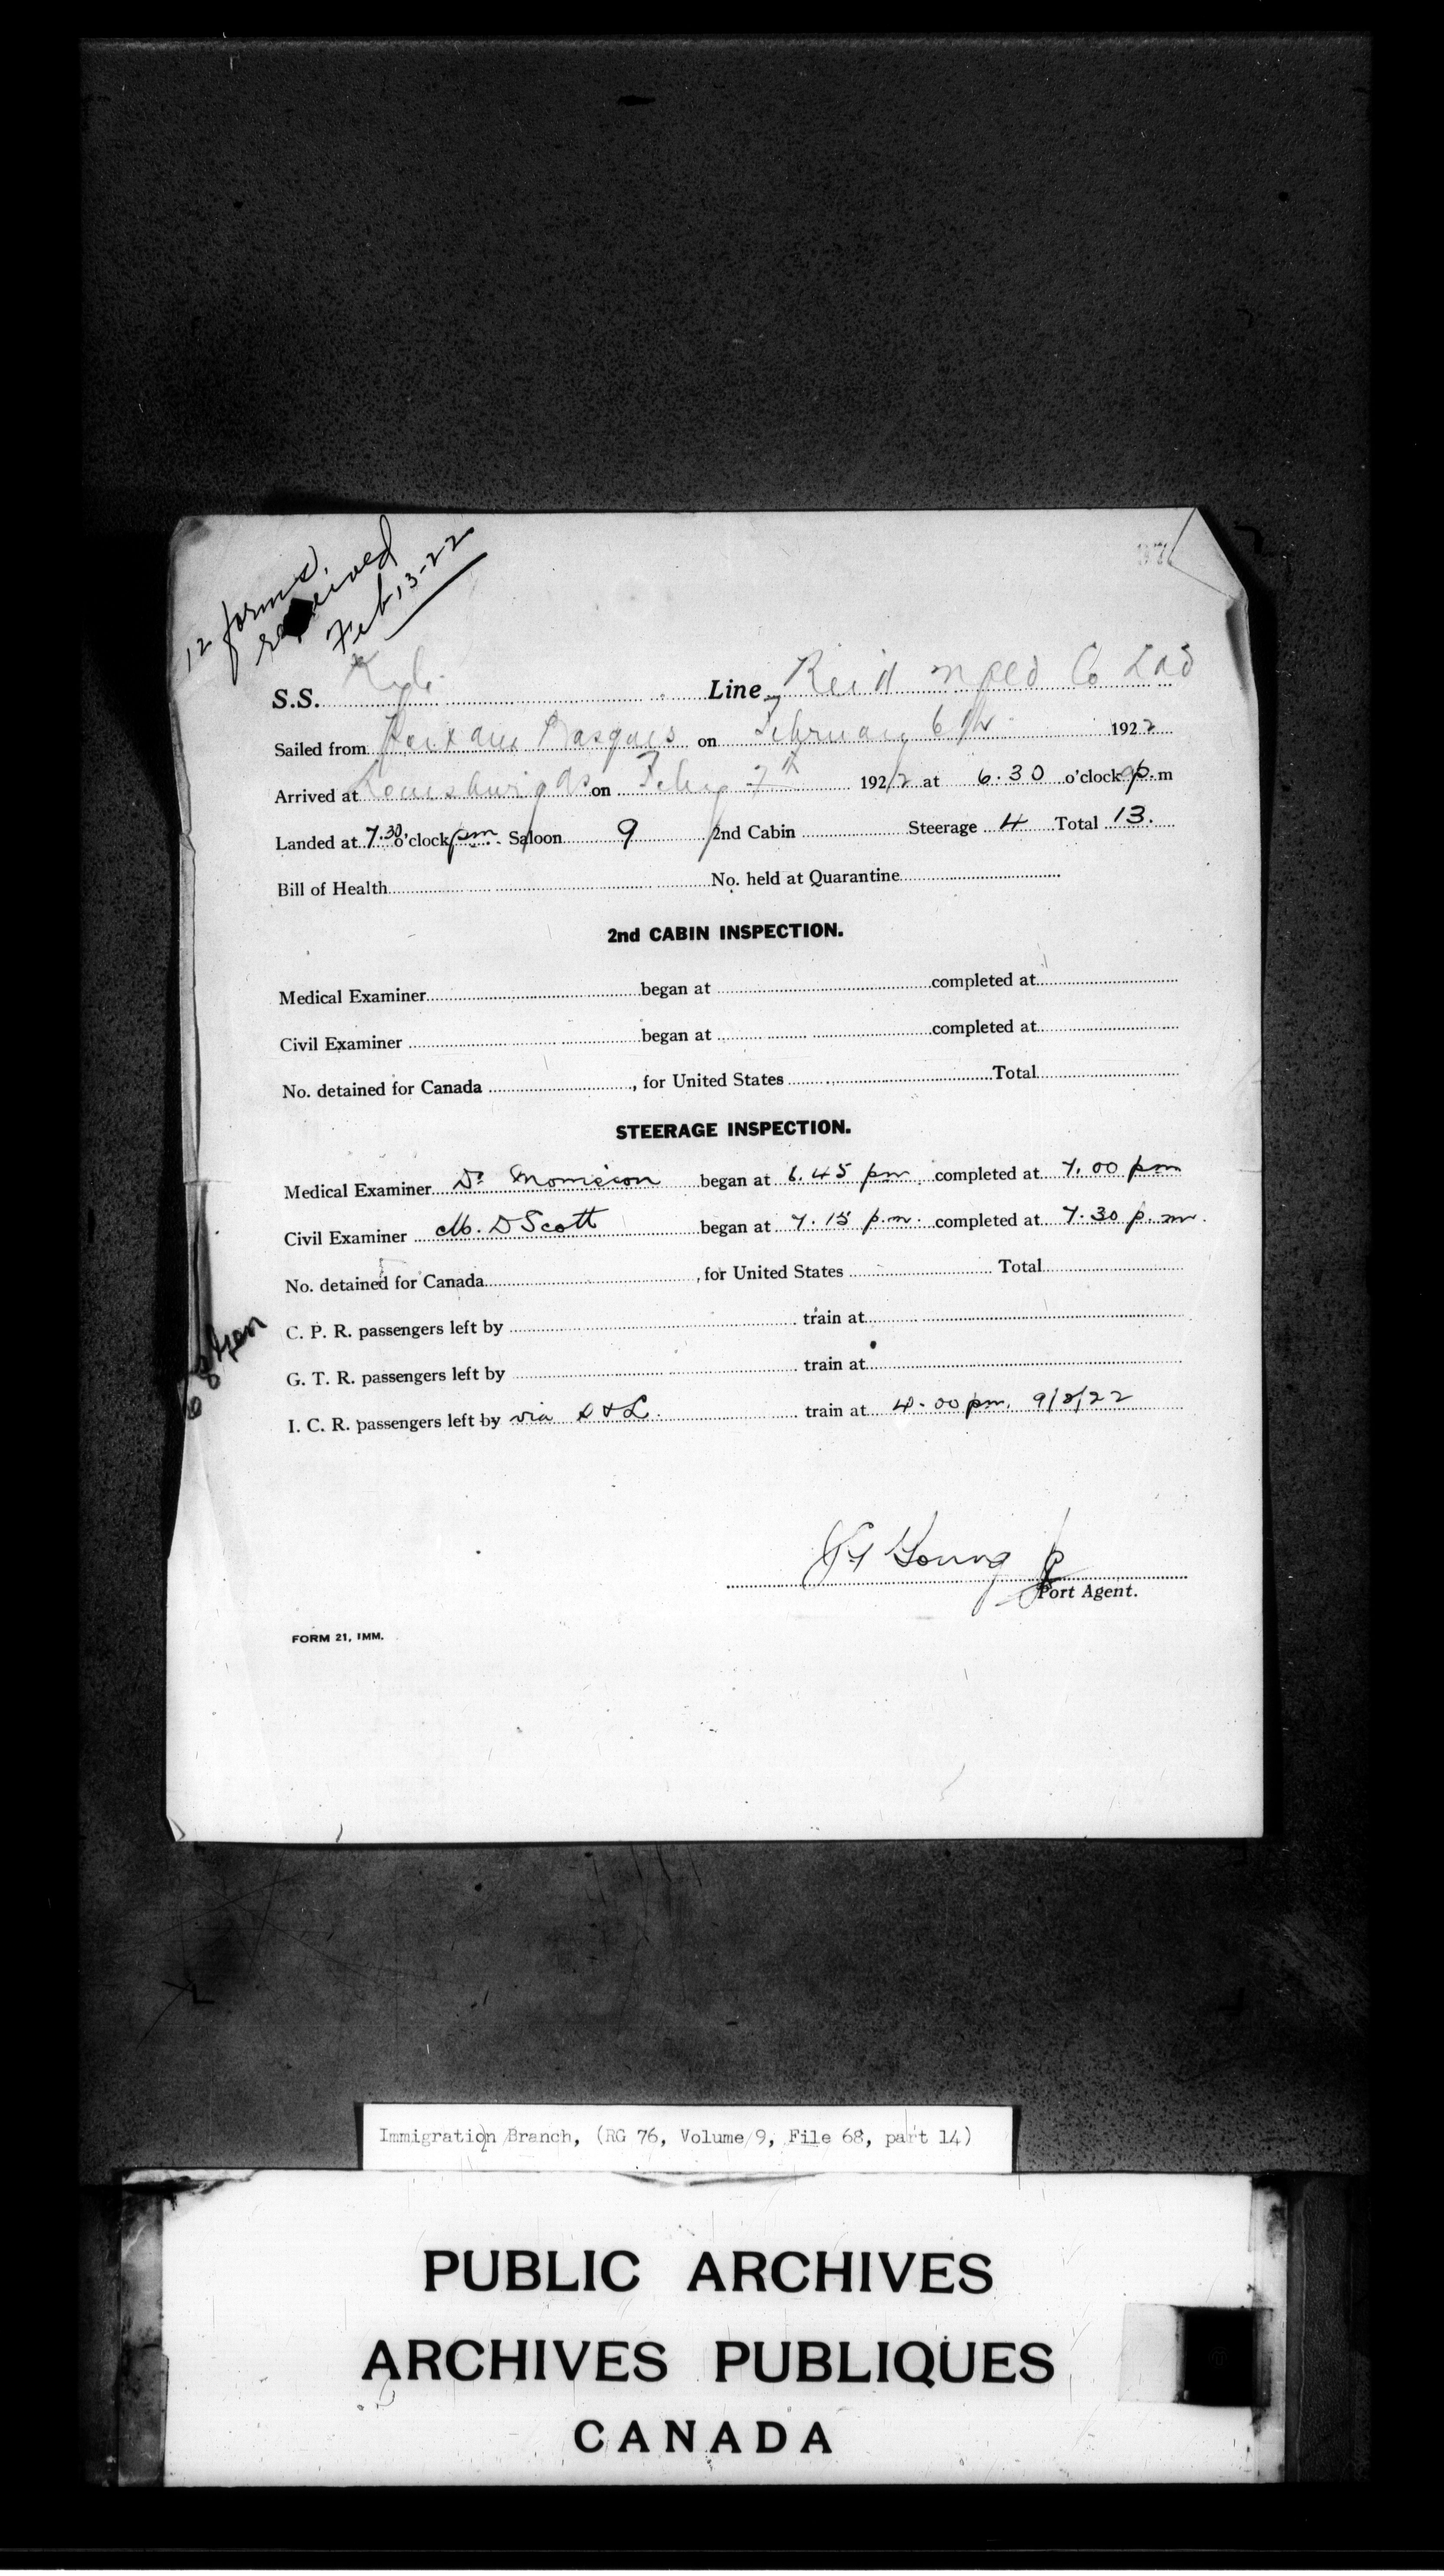 12 forms.
received
Feb 13-22
S.S. Kyle Line Reid Nfled Co Ltd
Sailed from Port aux Basques on February 6th 1922
Arrived at Louisburg NS on Feby 7th 1922 at 6.30 o'clock p.m
Landed at 7.30 o'clock pm. Saloon 9 2nd Cabin Steerage 4 Total 13.
Bill of Health No. held at Quarantine
2nd CABIN INSPECTION.
Medical Examiner began at completed at
Civil Examiner began at completed at
No. detained for Canada , for United States Total
STEERAGE INSPECTION.
Medical Examiner Dr Morrison began at 6.45 pm completed at 7.00 pm
Civil Examiner M. D Scott began at 7.15 p.m. completed at 7.30 p.m.
No. detained for Canada , for United States Total
C. P. R. passengers left by train at
G. T. R. passengers left by train at
I. C. R. passengers left by via S & L. train at 4.00 pm. 9/2/22
Young
Port Agent.
FORM 21, IMM.
Immigration Branch, (RG 76, Volume 9, File 68, part 14)
PUBLIC ARCHIVES
ARCHIVES PUBLIQUES
CANADA